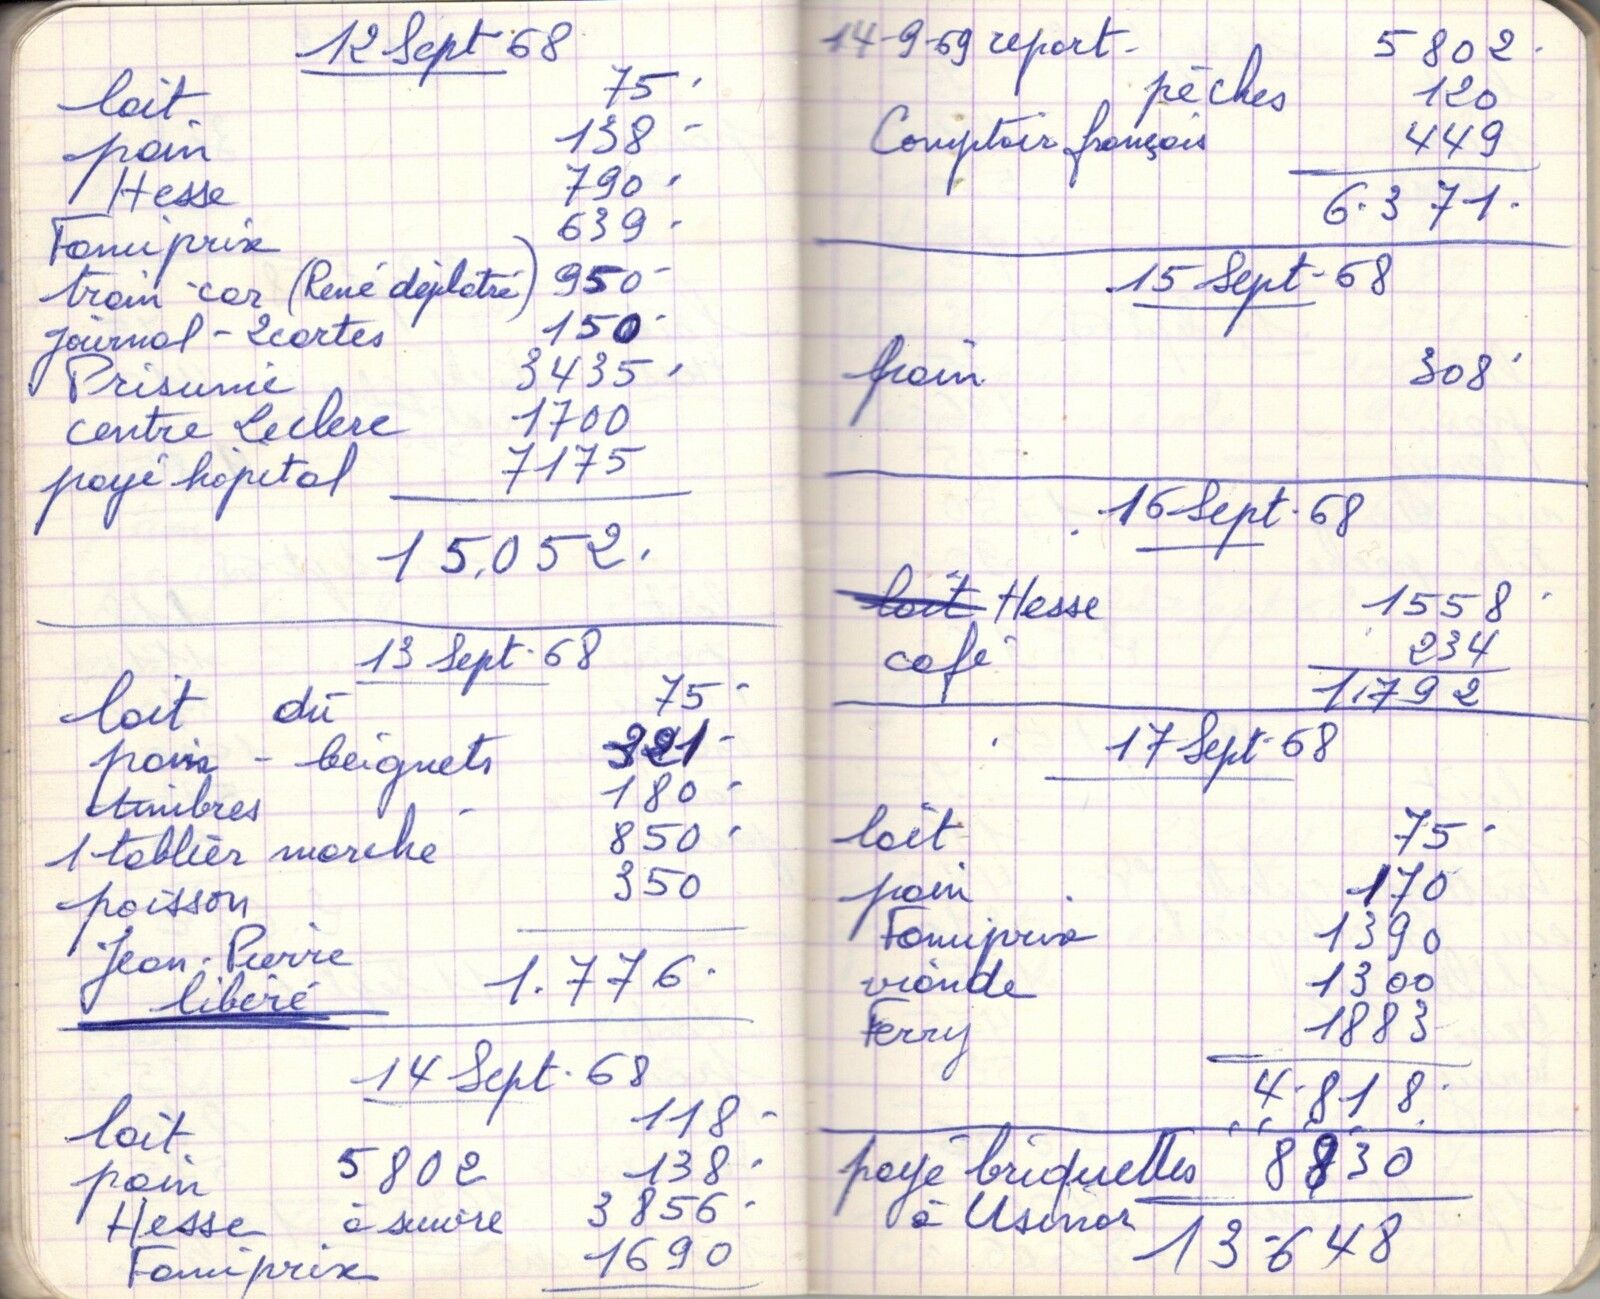 12 Sept 68
lait 75
pain 138
Hesse 790
Famiprix 639
train-car (René déplâtré) 950
journal - 2 cartes 150
Prisunic 3435
centre Leclerc 1700
payé hôpital 7175
15.052.
13 Sept. 68
lait dû 75
pain - beignets 321
timbres 180
1 tablier marché 850
poisson 350
Jean-Pierre
libéré 1.776.
14 Sept. 68
lait 118
pain 5802 138
Hesse à suivre 3856
Famiprix 1690
14-9-69 report- 5802.
pêches 120
Comptoir français 449
6.371.
15 Sept. 68
pain 308
16 Sept. 68
lait Hesse 1558
café 234
1.792
17 Sept. 68
lait 75
pain 170
Famiprix 1390
viande 1300
Ferry 1883
4.818.
payé briquettes 8830
à Usinor
13.648